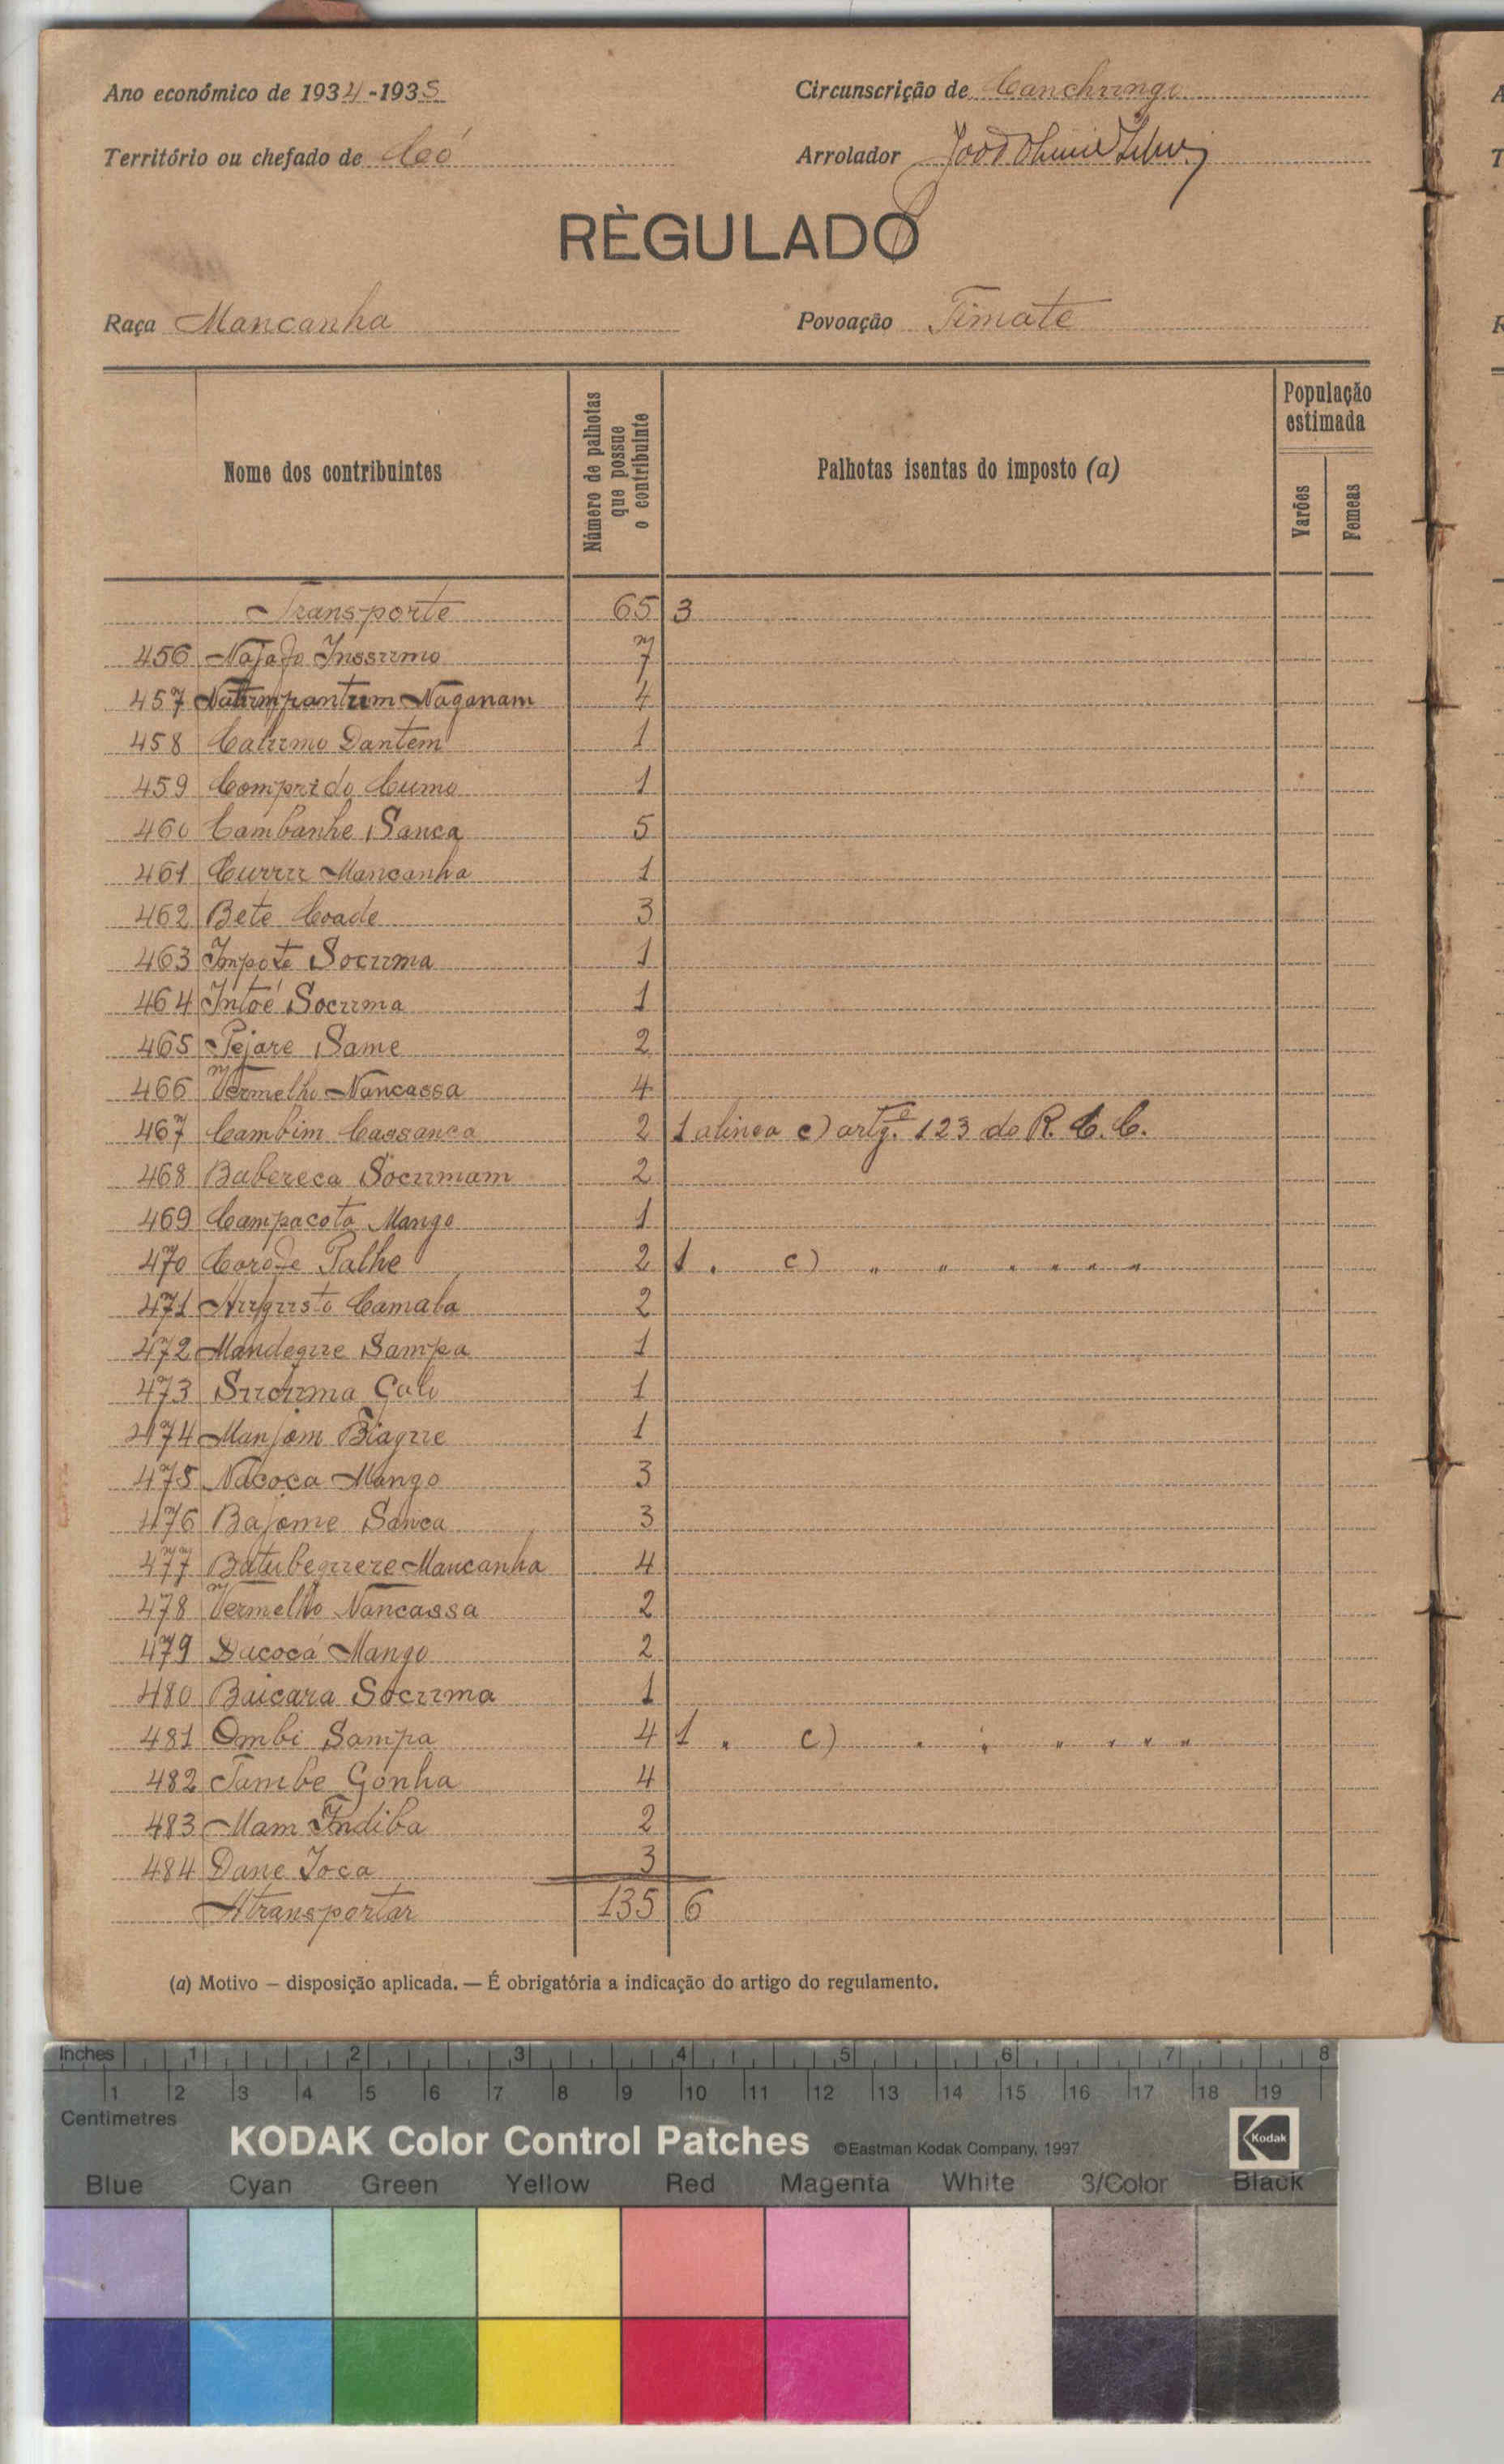 Ano económico de 1934-1935
Circunscrição de Canchungo
Território ou chefado de Có
Arrolador
RÈGULADO
Raça Mancanha
Povoação Timate
Nome dos contribuintes
Número de palhotas que possue o contribuinte
Palhotas isentas do imposto (a)
População estimada
Varões
Femeas
Transporte 65 3
456 Najajo Inssumo 7
457 Natumpantum Naganam 4
458 Calumo Dantem 1
459 Comprido Cumo 1
460 Cambanhe Sanca 5
461 Cururu Mancanha 1
462 Bete Coade 3
463 Impote Socuma 1
464 Intoé Socuma 1
465 Pejare Same 2
466 Vermelho Nancassa 4
467 Cambim Cassanca 2 1 alinea c) artg.º 123 do R. C. C.
468 Babereca Socumam 2
469 Campacota Mango 1
470 Corode Palhe 2 1 " c) " " " " " "
471 Augusto Camala 2
472 Mandegue Sampa 1
473 Sucuma Calo 1
474 Manjam Biague 1
475 Nacoca Mango 3
476 Bajome Sanca 3
477 Batubequere Mancanha 4
478 Vermelho Nancassa 2
479 Dacocá Mango 2
480 Baicara Socuma 1
481 Ombi Sampa 4 1 " c) " " " " " "
482 Tambe Gonha 4
483 Mam Indiba 2
484 Dane Joca 3
A transportar 135 6
(a) Motivo — disposição aplicada. — É obrigatória a indicação do artigo do regulamento.
Inches 1 2 3 4 5 6 7 8
1 2 3 4 5 6 7 8 9 10 11 12 13 14 15 16 17 18 19
Centimetres
KODAK Color Control Patches ©Eastman Kodak Company, 1997 Kodak
Blue Cyan Green Yellow Red Magenta White 3/Color Black